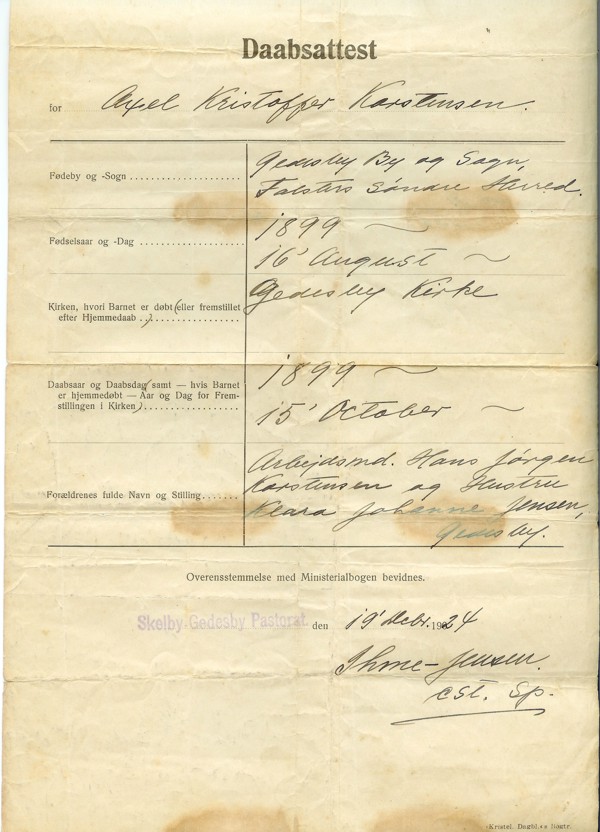 Daabsattest
for Axel Kristoffer Karstensen.
Fødeby og -Sogn
Gedesby By og Sogn,
Falsters Søndre Herred.
Fødselsaar og -Dag
1899 ~
16' August ~
Kirken, hvori Barnet er døbt (eller fremstillet
efter Hjemmedaab . . )
Gedesby Kirke
Daabsaar og Daabsdag samt — hvis Barnet
er hjemmedøbt — Aar og Dag for Frem-
stillingen i Kirken)
1899 ~
15' October ~
Forældrenes fulde Navn og Stilling
Arbejdsmd. Hans Jørgen
Karstensen og Hustru
Klara Johanne Jensen,
Gedesby.
Overensstemmelse med Ministerialbogen bevidnes.
Skelby-Gedesby Pastorat den 19' Decbr. 1924
Jensen.
cst. Sp.
Kristel. Dagbl.s Bogtr.